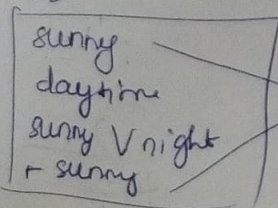 sunny
daytime
sunny V night
r sunny